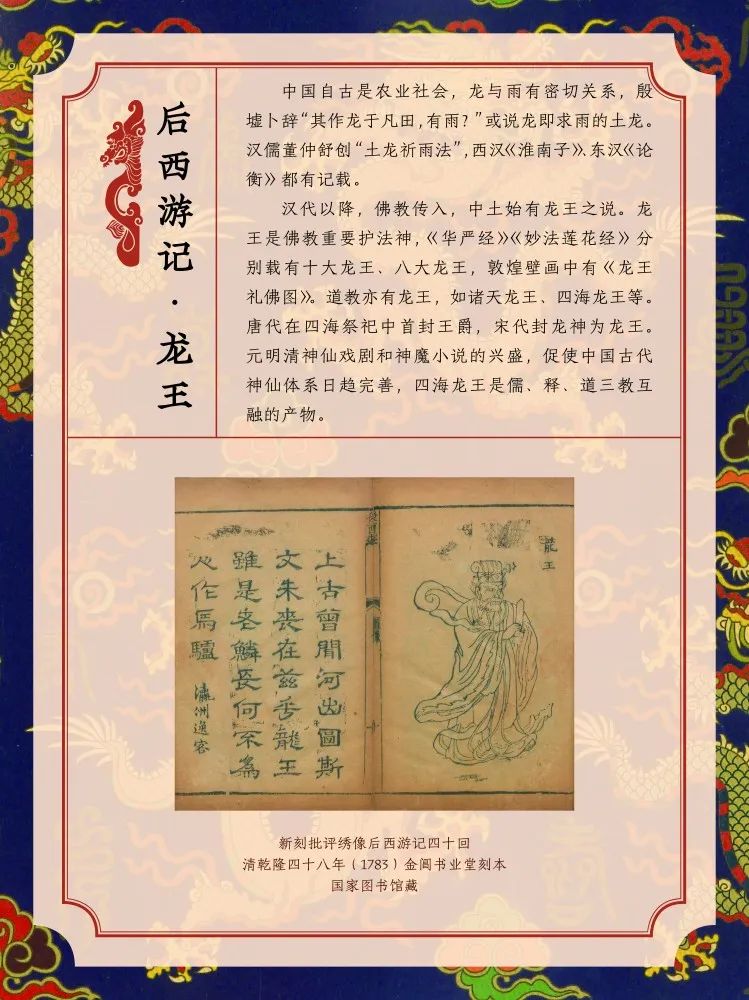 后西游记·龙王
中国自古是农业社会，龙与雨有密切关系，殷
墟卜辞“其作龙于凡田，有雨？”或说龙即求雨的土龙。
汉儒董仲舒创“土龙祈雨法”，西汉《淮南子》、东汉《论
衡》都有记载。
汉代以降，佛教传入，中土始有龙王之说。龙
王是佛教重要护法神，《华严经》《妙法莲花经》分
别载有十大龙王、八大龙王，敦煌壁画中有《龙王
礼佛图》。道教亦有龙王，如诸天龙王、四海龙王等。
唐代在四海祭祀中首封王爵，宋代封龙神为龙王。
元明清神仙戏剧和神魔小说的兴盛，促使中国古代
神仙体系日趋完善，四海龙王是儒、释、道三教互
融的产物。
龍王
上古曾聞河出圖斯
文未喪在茲乎龍王
雖是老鱗長何不為
作馬驢
瀛洲逸客
新刻批评绣像后西游记四十回
清乾隆四十八年（1783）金阊书业堂刻本
国家图书馆藏